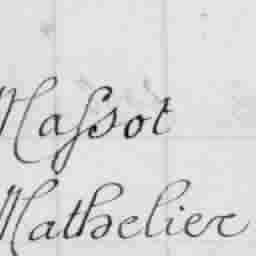 Massot
Mathelier